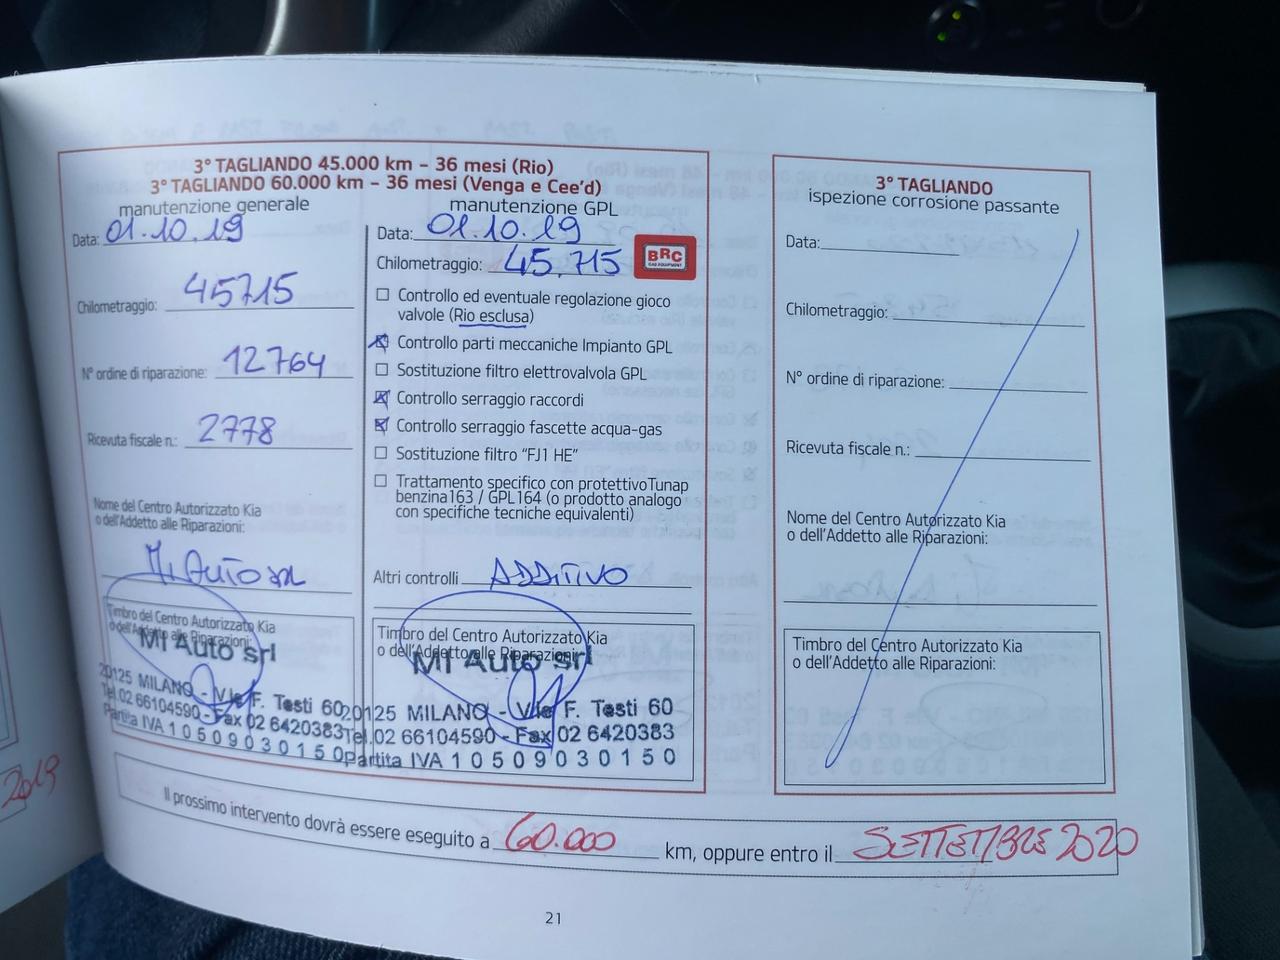 3° TAGLIANDO 45.000 km – 36 mesi (Rio)
3° TAGLIANDO 60.000 km – 36 mesi (Venga e Cee'd)
manutenzione generale
Data: 01.10.19
Chilometraggio: 45715
N° ordine di riparazione: 12764
Ricevuta fiscale n.: 2778
Nome del Centro Autorizzato Kia
o dell'Addetto alle Riparazioni:
Mi Auto srl
Timbro del Centro Autorizzato Kia
o dell'Addetto alle Riparazioni:
MI Auto srl
20125 MILANO - V.le F. Testi 60
Tel.02 66104590 - Fax 02 6420383
Partita IVA 1 0 5 0 9 0 3 0 1 5 0
manutenzione GPL
Data: 01.10.19
Chilometraggio: 45.715
BRC
GAS EQUIPMENT
Controllo ed eventuale regolazione gioco
valvole (Rio esclusa)
Controllo parti meccaniche Impianto GPL
Sostituzione filtro elettrovalvola GPL
Controllo serraggio raccordi
Controllo serraggio fascette acqua-gas
Sostituzione filtro "FJ1 HE"
Trattamento specifico con protettivoTunap
benzina163 / GPL164 (o prodotto analogo
con specifiche tecniche equivalenti)
Altri controlli ADDITIVO
Timbro del Centro Autorizzato Kia
o dell'Addetto alle Riparazioni:
MI Auto srl
20125 MILANO - V.le F. Testi 60
Tel.02 66104590 - Fax 02 6420383
Partita IVA 1 0 5 0 9 0 3 0 1 5 0
3° TAGLIANDO
ispezione corrosione passante
Data:
Chilometraggio:
N° ordine di riparazione:
Ricevuta fiscale n.:
Nome del Centro Autorizzato Kia
o dell'Addetto alle Riparazioni:
Timbro del Centro Autorizzato Kia
o dell'Addetto alle Riparazioni:
2019
Il prossimo intervento dovrà essere eseguito a 60.000 km, oppure entro il SETTEMBRE 2020
21